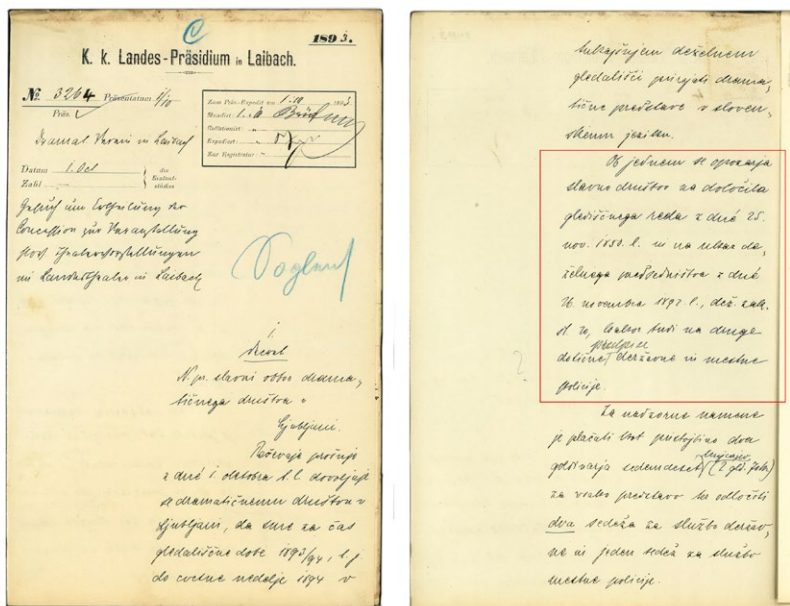 C
1893.
K. k. Landes-Präsidium in Laibach.
№ 3264 Präsentatum 1/10
Präs.
Zum Präs.-Expedit am 1.10. 1893.
Mundirt
Collationirt
Expedirt
Zur Registratur
Dramat. Verein in Laibach
Datum 1. Oct
Zahl
des Exhibitstückes
Gesuch um Ertheilung der
Concession zur Veranstaltung
slov. Theatervorstellungen
im Landestheater in Laibach
1.
Decret
N. pr. slavni odbor drama-
tičnega društva v
Ljubljani.
Rešivaje prošnjo
z dné 1. oktobra t. l. dovoljuje
se dramatičnemu društvu v
Ljubljani, da sme za čas
gledališčne dobe 1893/94, t. j.
do cvetne nedelje 1894 v
tukajšnjem deželnem
gledališči prirejati drama-
tične predstave v sloven-
skem jeziku.
Ob jednem se opozarja
slavno društvo na določila
glediščnega reda z dné 25.
nov. 1850. l. in na ukaz de-
želnega predsedništva z dné
26. novembra 1892 l., dež. zak.
št. 20, kakor tudi na druge
predpise
dotične državne in mestne
policije.
?
Za nadzorne namene
je plačati kot pristojbino dva
goldinarja sedemdeset krajcarjev (2 gld. 70 kr.)
za vsako predstavo ter odločiti
dva sedeža za službo držav-
ne in jeden sedež za službo
mestne policije.